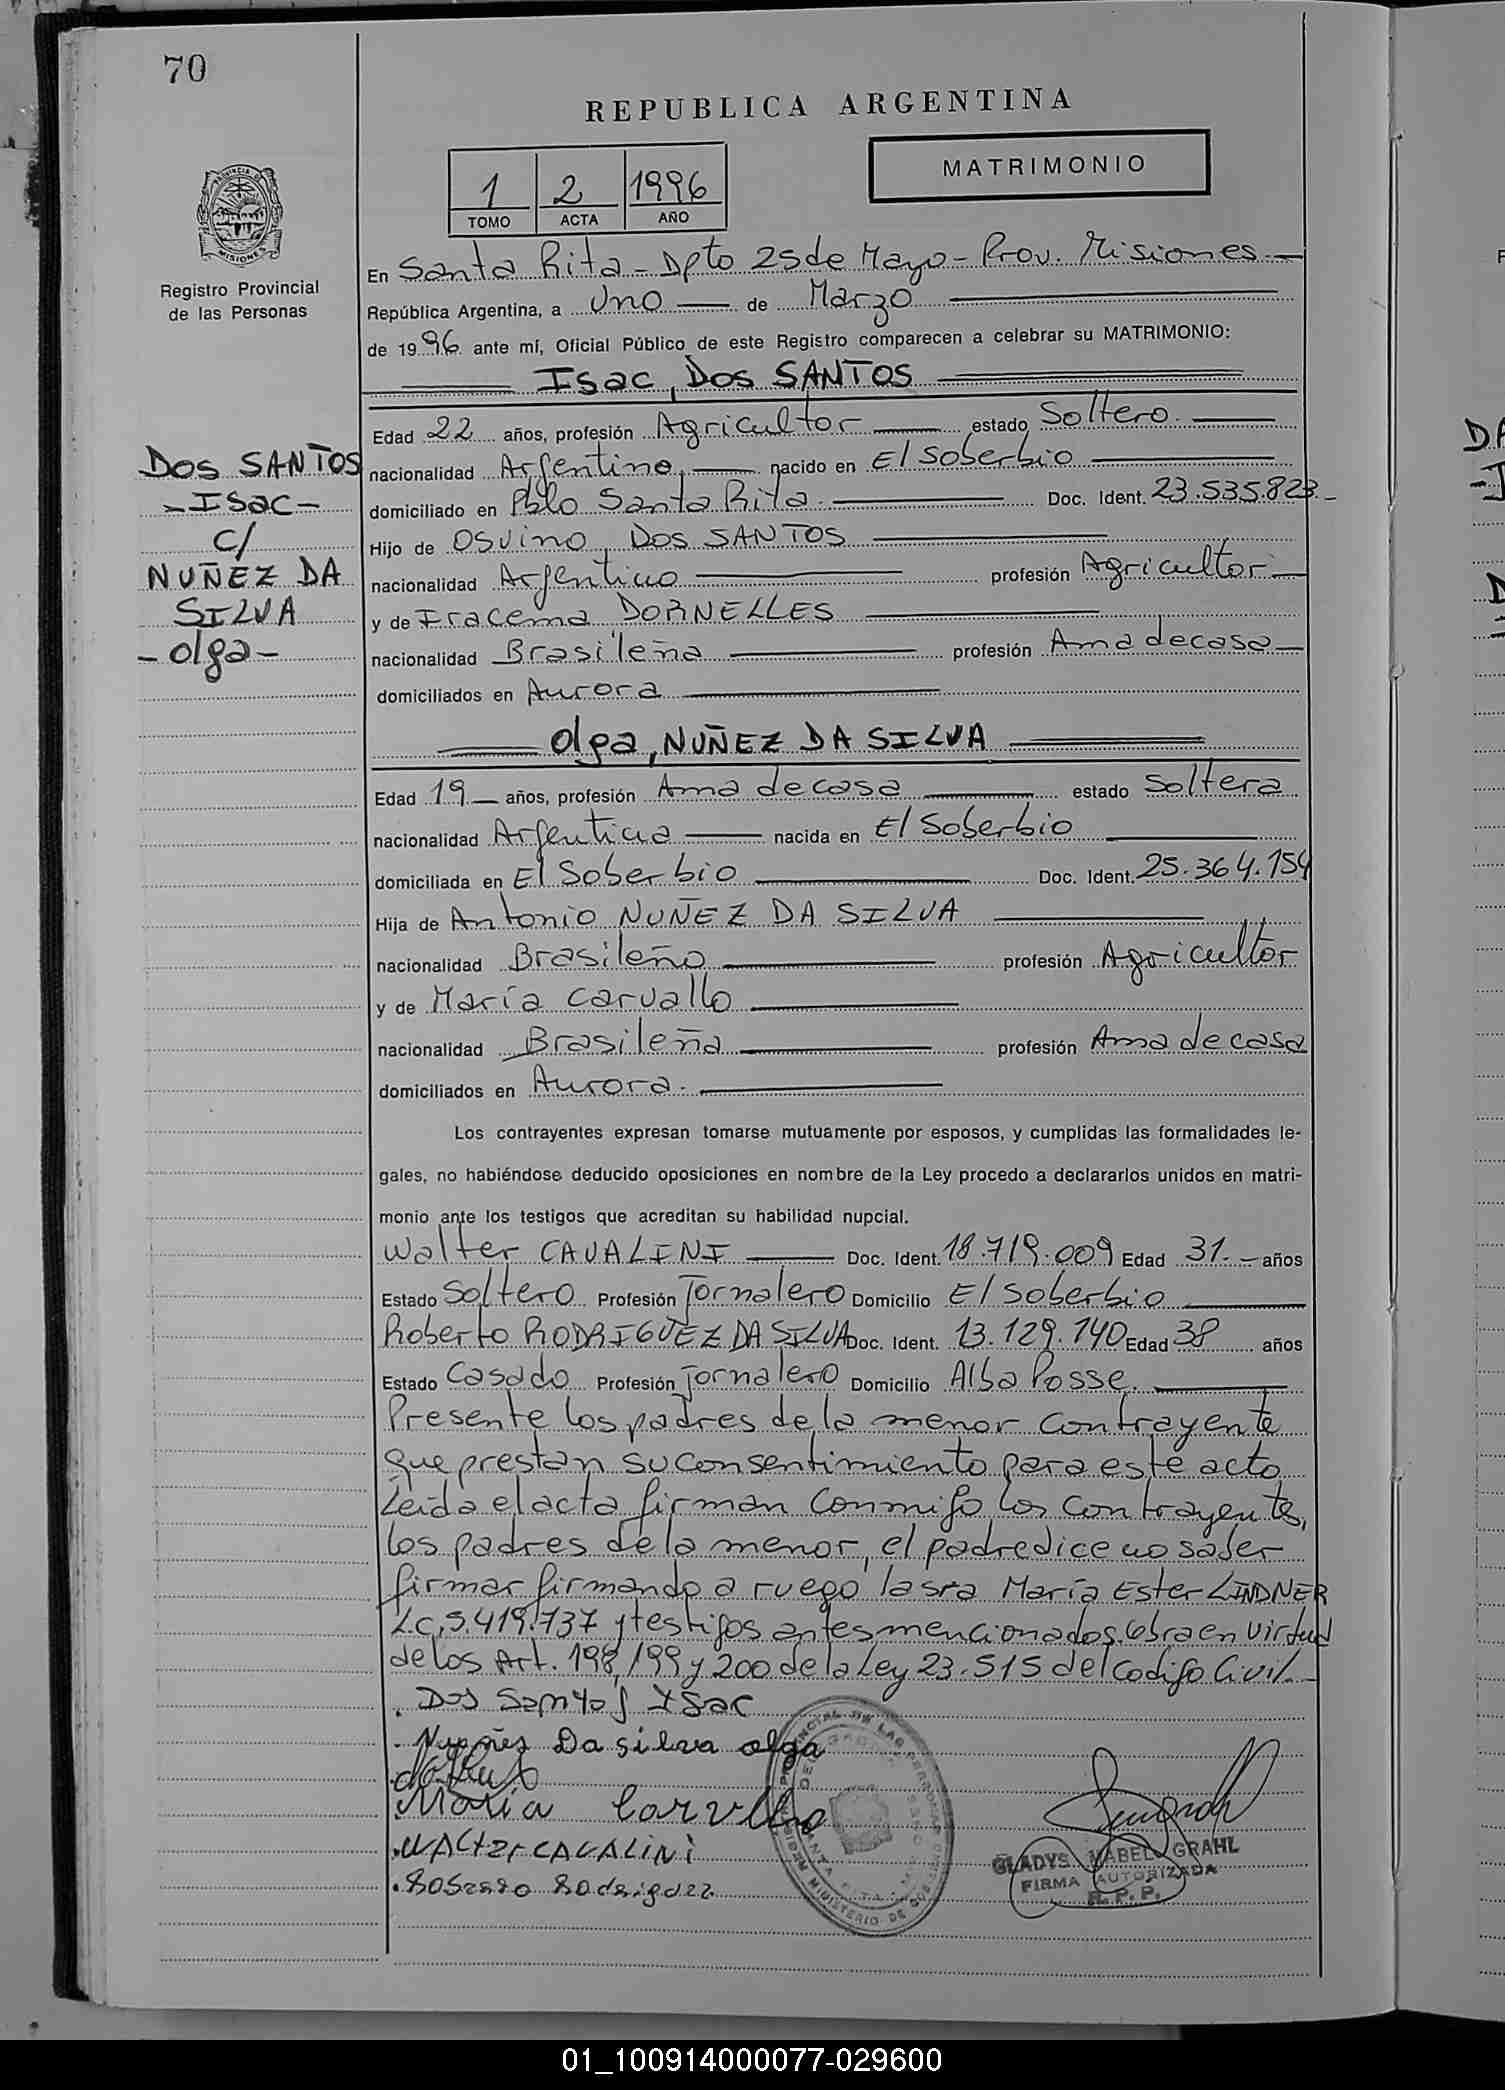 70
REPUBLICA ARGENTINA
MATRIMONIO
1 2 1996
TOMO ACTA AÑO
PROVINCIA DE MISIONES
Registro Provincial
de las Personas
En Santa Rita - Dpto 25 de Mayo - Prov. Misiones
República Argentina, a Uno de Marzo
de 1996 ante mí, Oficial Público de este Registro comparecen a celebrar su MATRIMONIO:
Isac, Dos SANTOS
Edad 22 años, profesión Agricultor estado Soltero
nacionalidad Argentino nacido en El Soberbio
domiciliado en Pblo Santa Rita Doc. Ident. 23.535.823
Hijo de Osvino, Dos SANTOS
nacionalidad Argentino profesión Agricultor
y de Iracema DORNELLES
nacionalidad Brasileña profesión Ama de casa
domiciliados en Aurora
DOS SANTOS
- Isac -
C/
NUÑEZ DA
SILVA
- Olga -
Olga, NUÑEZ DA SILVA
Edad 19 años, profesión Ama de casa estado Soltera
nacionalidad Argentina nacida en El Soberbio
domiciliada en El Soberbio Doc. Ident. 25.364.154
Hija de Antonio NUÑEZ DA SILVA
nacionalidad Brasileño profesión Agricultor
y de María Carvallo
nacionalidad Brasileña profesión Ama de casa
domiciliados en Aurora.
Los contrayentes expresan tomarse mutuamente por esposos, y cumplidas las formalidades le-
gales, no habiéndose deducido oposiciones en nombre de la Ley procedo a declararlos unidos en matri-
monio ante los testigos que acreditan su habilidad nupcial.
Walter CAVALINI Doc. Ident. 18.719.009 Edad 31.- años
Estado Soltero Profesión Jornalero Domicilio El Soberbio
Roberto RODRIGUEZ DA SILVA Doc. Ident. 13.129.140 Edad 38 años
Estado Casado Profesión Jornalero Domicilio Alba Posse.
Presente los padres de la menor contrayente
que prestan su consentimiento para este acto
Leída el acta firman conmigo los contrayentes,
los padres de la menor, el padre dice no saber
firmar firmando a ruego la sra María Ester LINDNER
L.C. 5.419.737 y testigos antes mencionados. Obra en virtud
de los Art. 198, 199 y 200 de la Ley 23.515 del Codigo Civil.
Dos Santos Ysac
Nugñes Da silva olga
María Carvallo
WALTER CAVALINI
Roberto Rodriguez
GLADYS MABEL GRAHL
FIRMA AUTORIZADA
R.P.P.
01_100914000077-029600